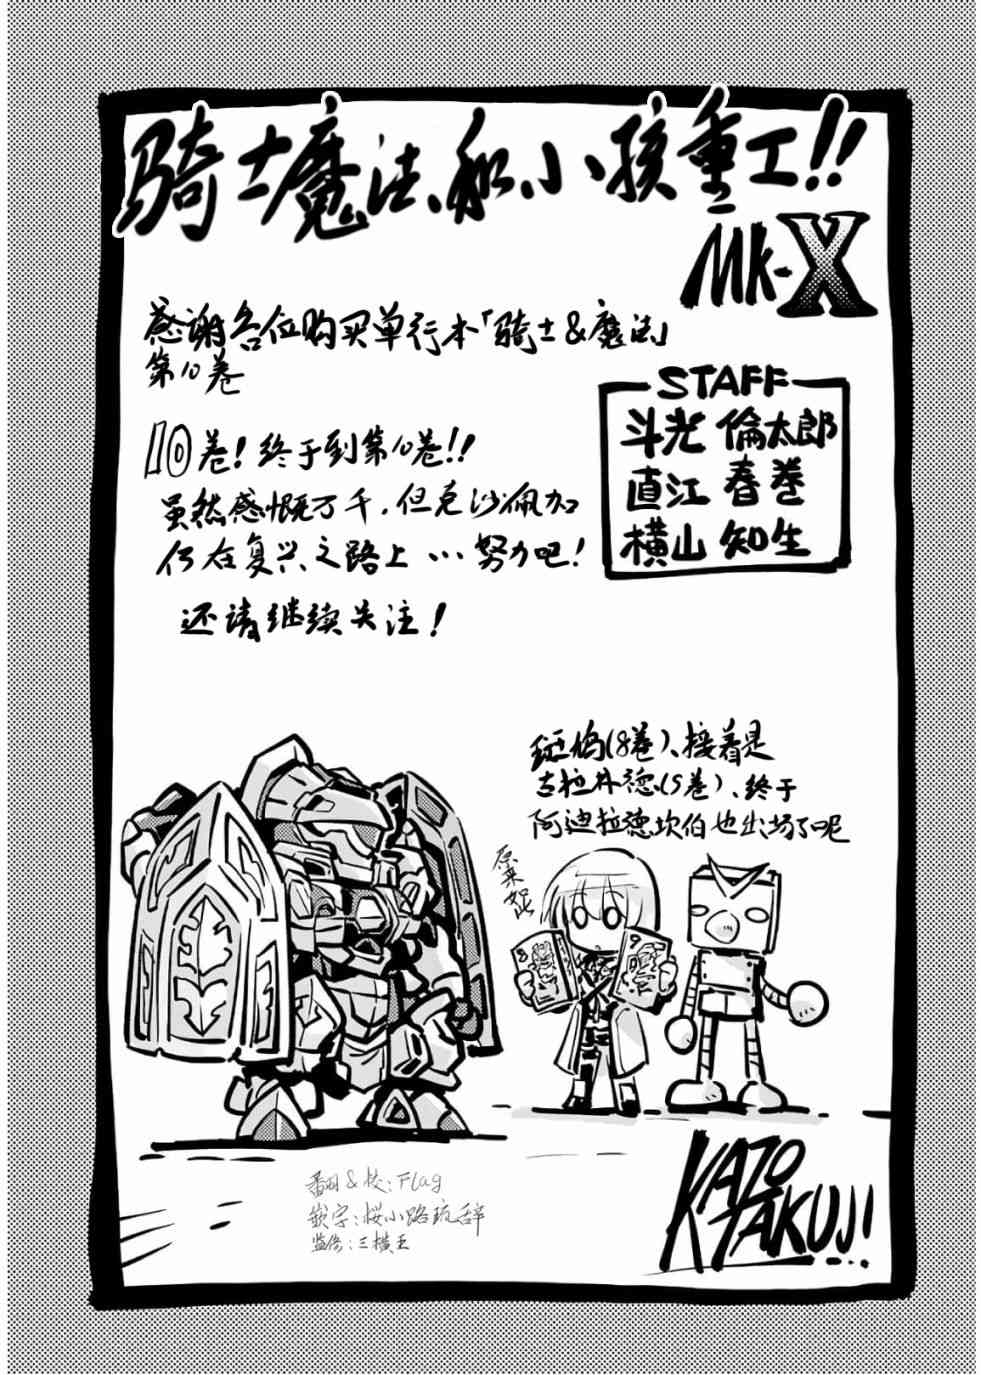 骑士魔法和小孩重工!!
Mk-X
感谢各位购买单行本「骑士&魔法」
第10卷
STAFF
斗光 倫太郎
直江 春巻
横山 知生
10卷！终于到第10卷!!
虽然感慨万千，但克沙佩加
仍在复兴之路上…努力吧！
还请继续关注！
斑鸠(8卷)、接着是
古拉林德(5卷)、终于
阿迪拉德坎伯也出场了呢
原来如此
8
9
KATO
TAKUJI
翻&校：Flag
嵌字：桜小路琉辞
监修：三横王